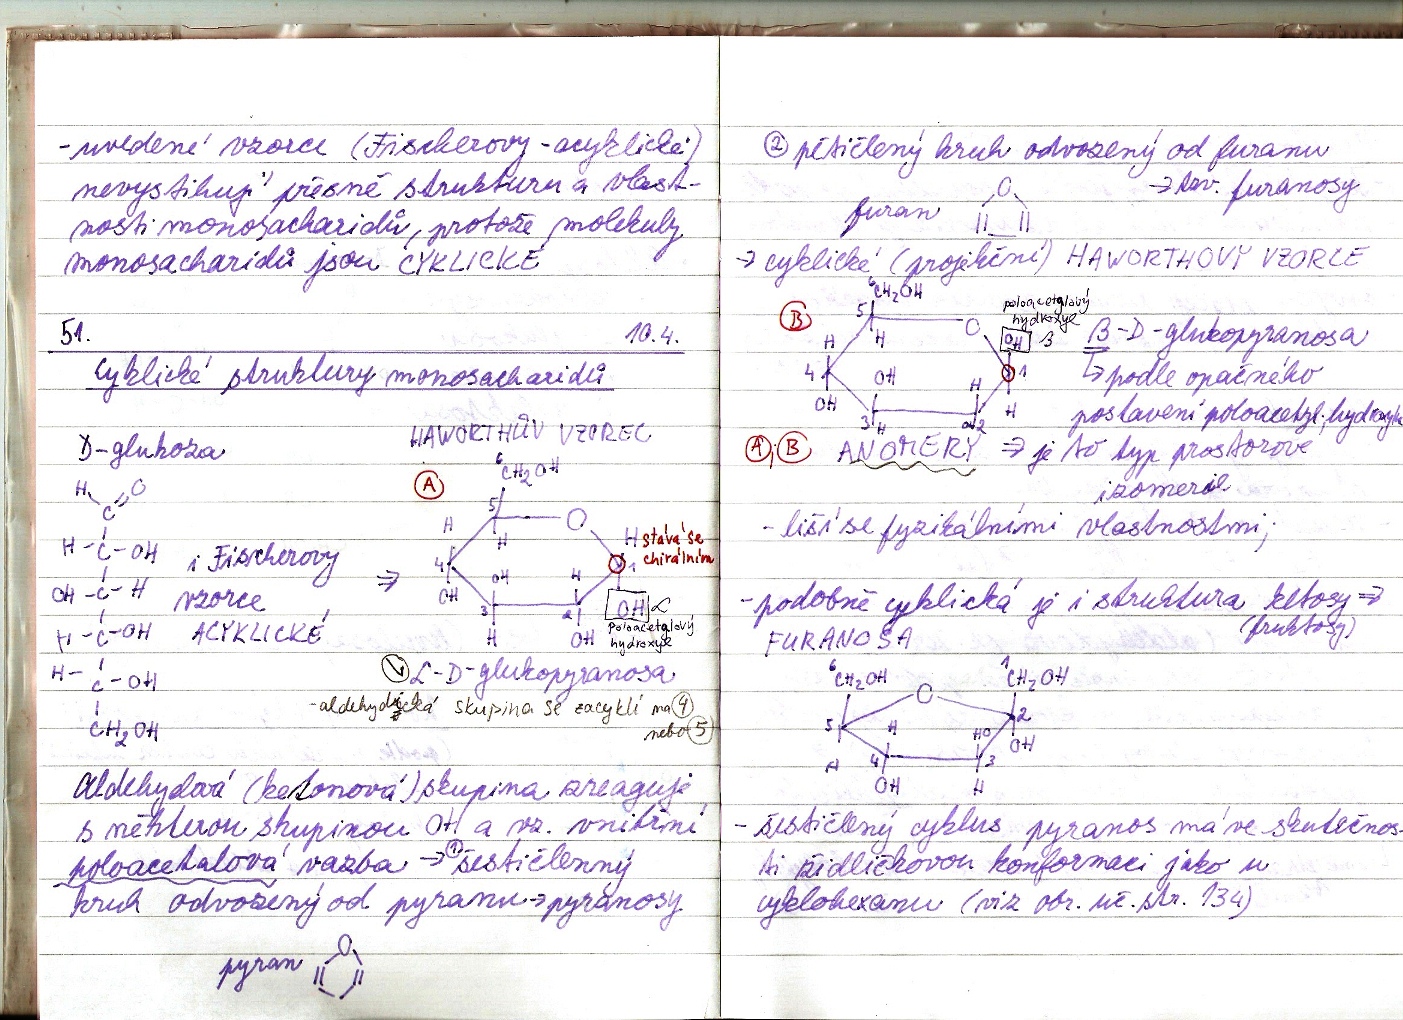 - uvedené vzorce (Fischerovy - acyklické)
nevystihují přesně strukturu a vlast-
nosti monosacharidů, protože molekuly
monosacharidů jsou CYKLICKÉ
51. 10.4.
Cyklické struktury monosacharidů
D-glukoza
HAWORTHŮV VZOREC
H O
C
H - C - OH
OH - C - H
H - C - OH
H - C - OH
CH2OH
i Fischerovy
vzorce
ACYKLICKÉ
⇒
A
6
CH2OH
5 O
H H
H stává se
chirálním
4 1
OH OH H
3 2
H OH
OH α
poloacetalový
hydroxyl
α-D-glukopyranosa
- aldehydická skupina se zacyklí na 4
nebo 5
Aldehydová (ketonová) skupina zreaguje
s některou skupinou OH a vz. vnitřní
poloacetalová vazba → 1 šestičlenný
kruh odvozený od pyranu → pyranosy
pyran O
2 pětičlený kruh odvozený od furanu
→ tzv. furanosy
furan O
→ cyklické (projekční) HAWORTHOVY VZORCE
B
6
CH2OH
5 O
poloacetalový
hydroxyl
OH β
H H
4 1
OH OH H H
3 H 2
β-D-glukopyranosa
↳ podle opačného
postavení poloacetal. hydroxylu
A, B ANOMERY ⇒ je to typ prostorové
izomerie
- liší se fyzikálními vlastnostmi;
- podobně cyklická je i struktura ketosy ⇒
(fruktosy)
FURANOSA
6 1
CH2OH O CH2OH
5 2
H HO OH
H 4 3
OH H
- šestičlený cyklus pyranos má ve skutečnos-
ti židličkovou konformaci jako u
cyklohexanu (viz obr. uč. str. 134)